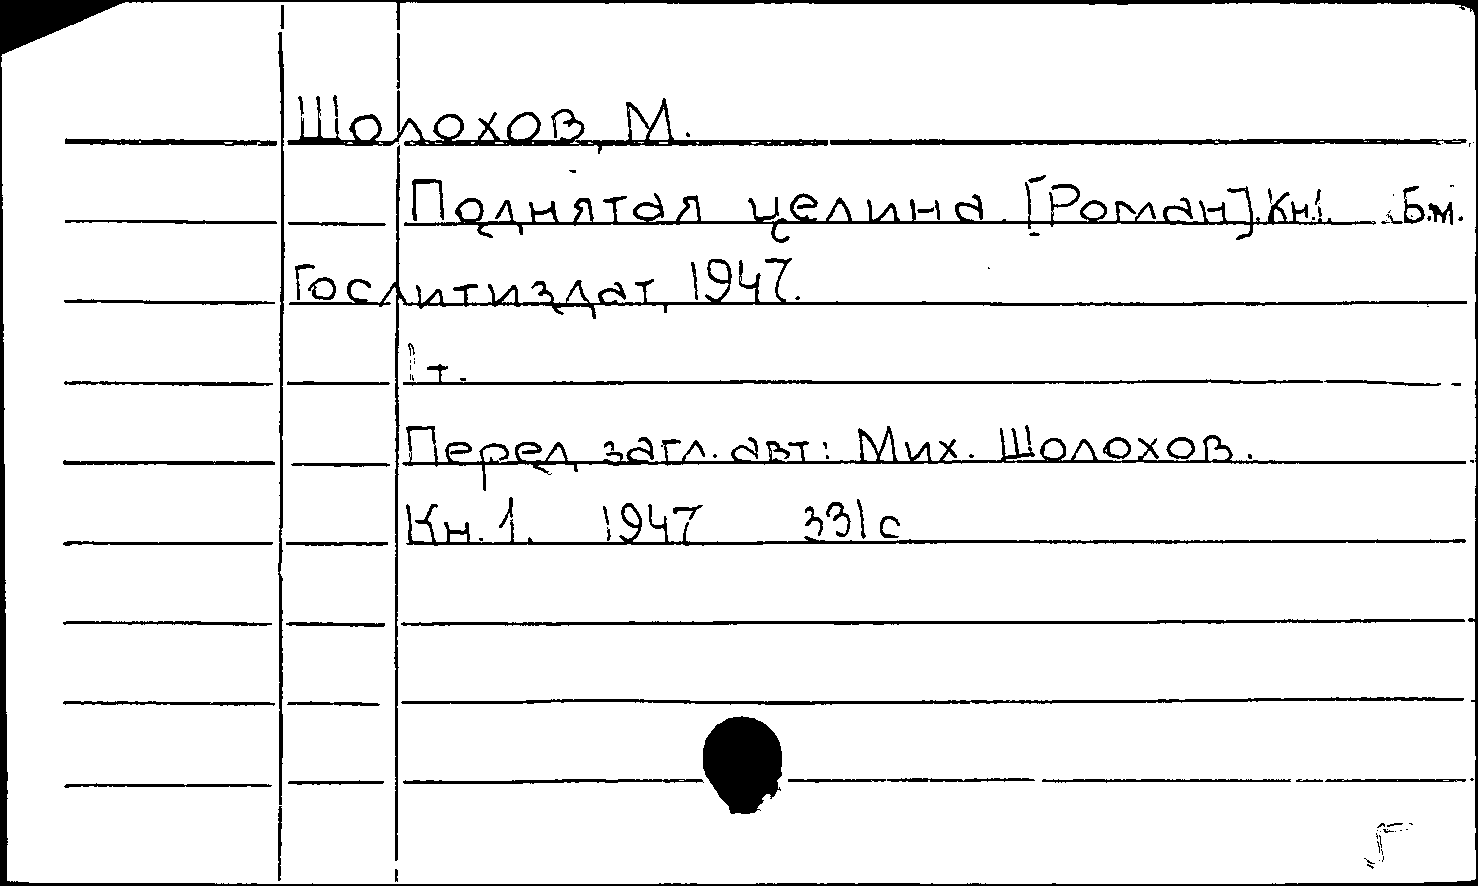 Шолохов, М.
Поднятая целина. [Роман]. Кн.1. Б.м.
Гослитиздат, 1947.
1 т.
Перед загл. авт: Мих. Шолохов.
Кн. 1. 1947 331 с